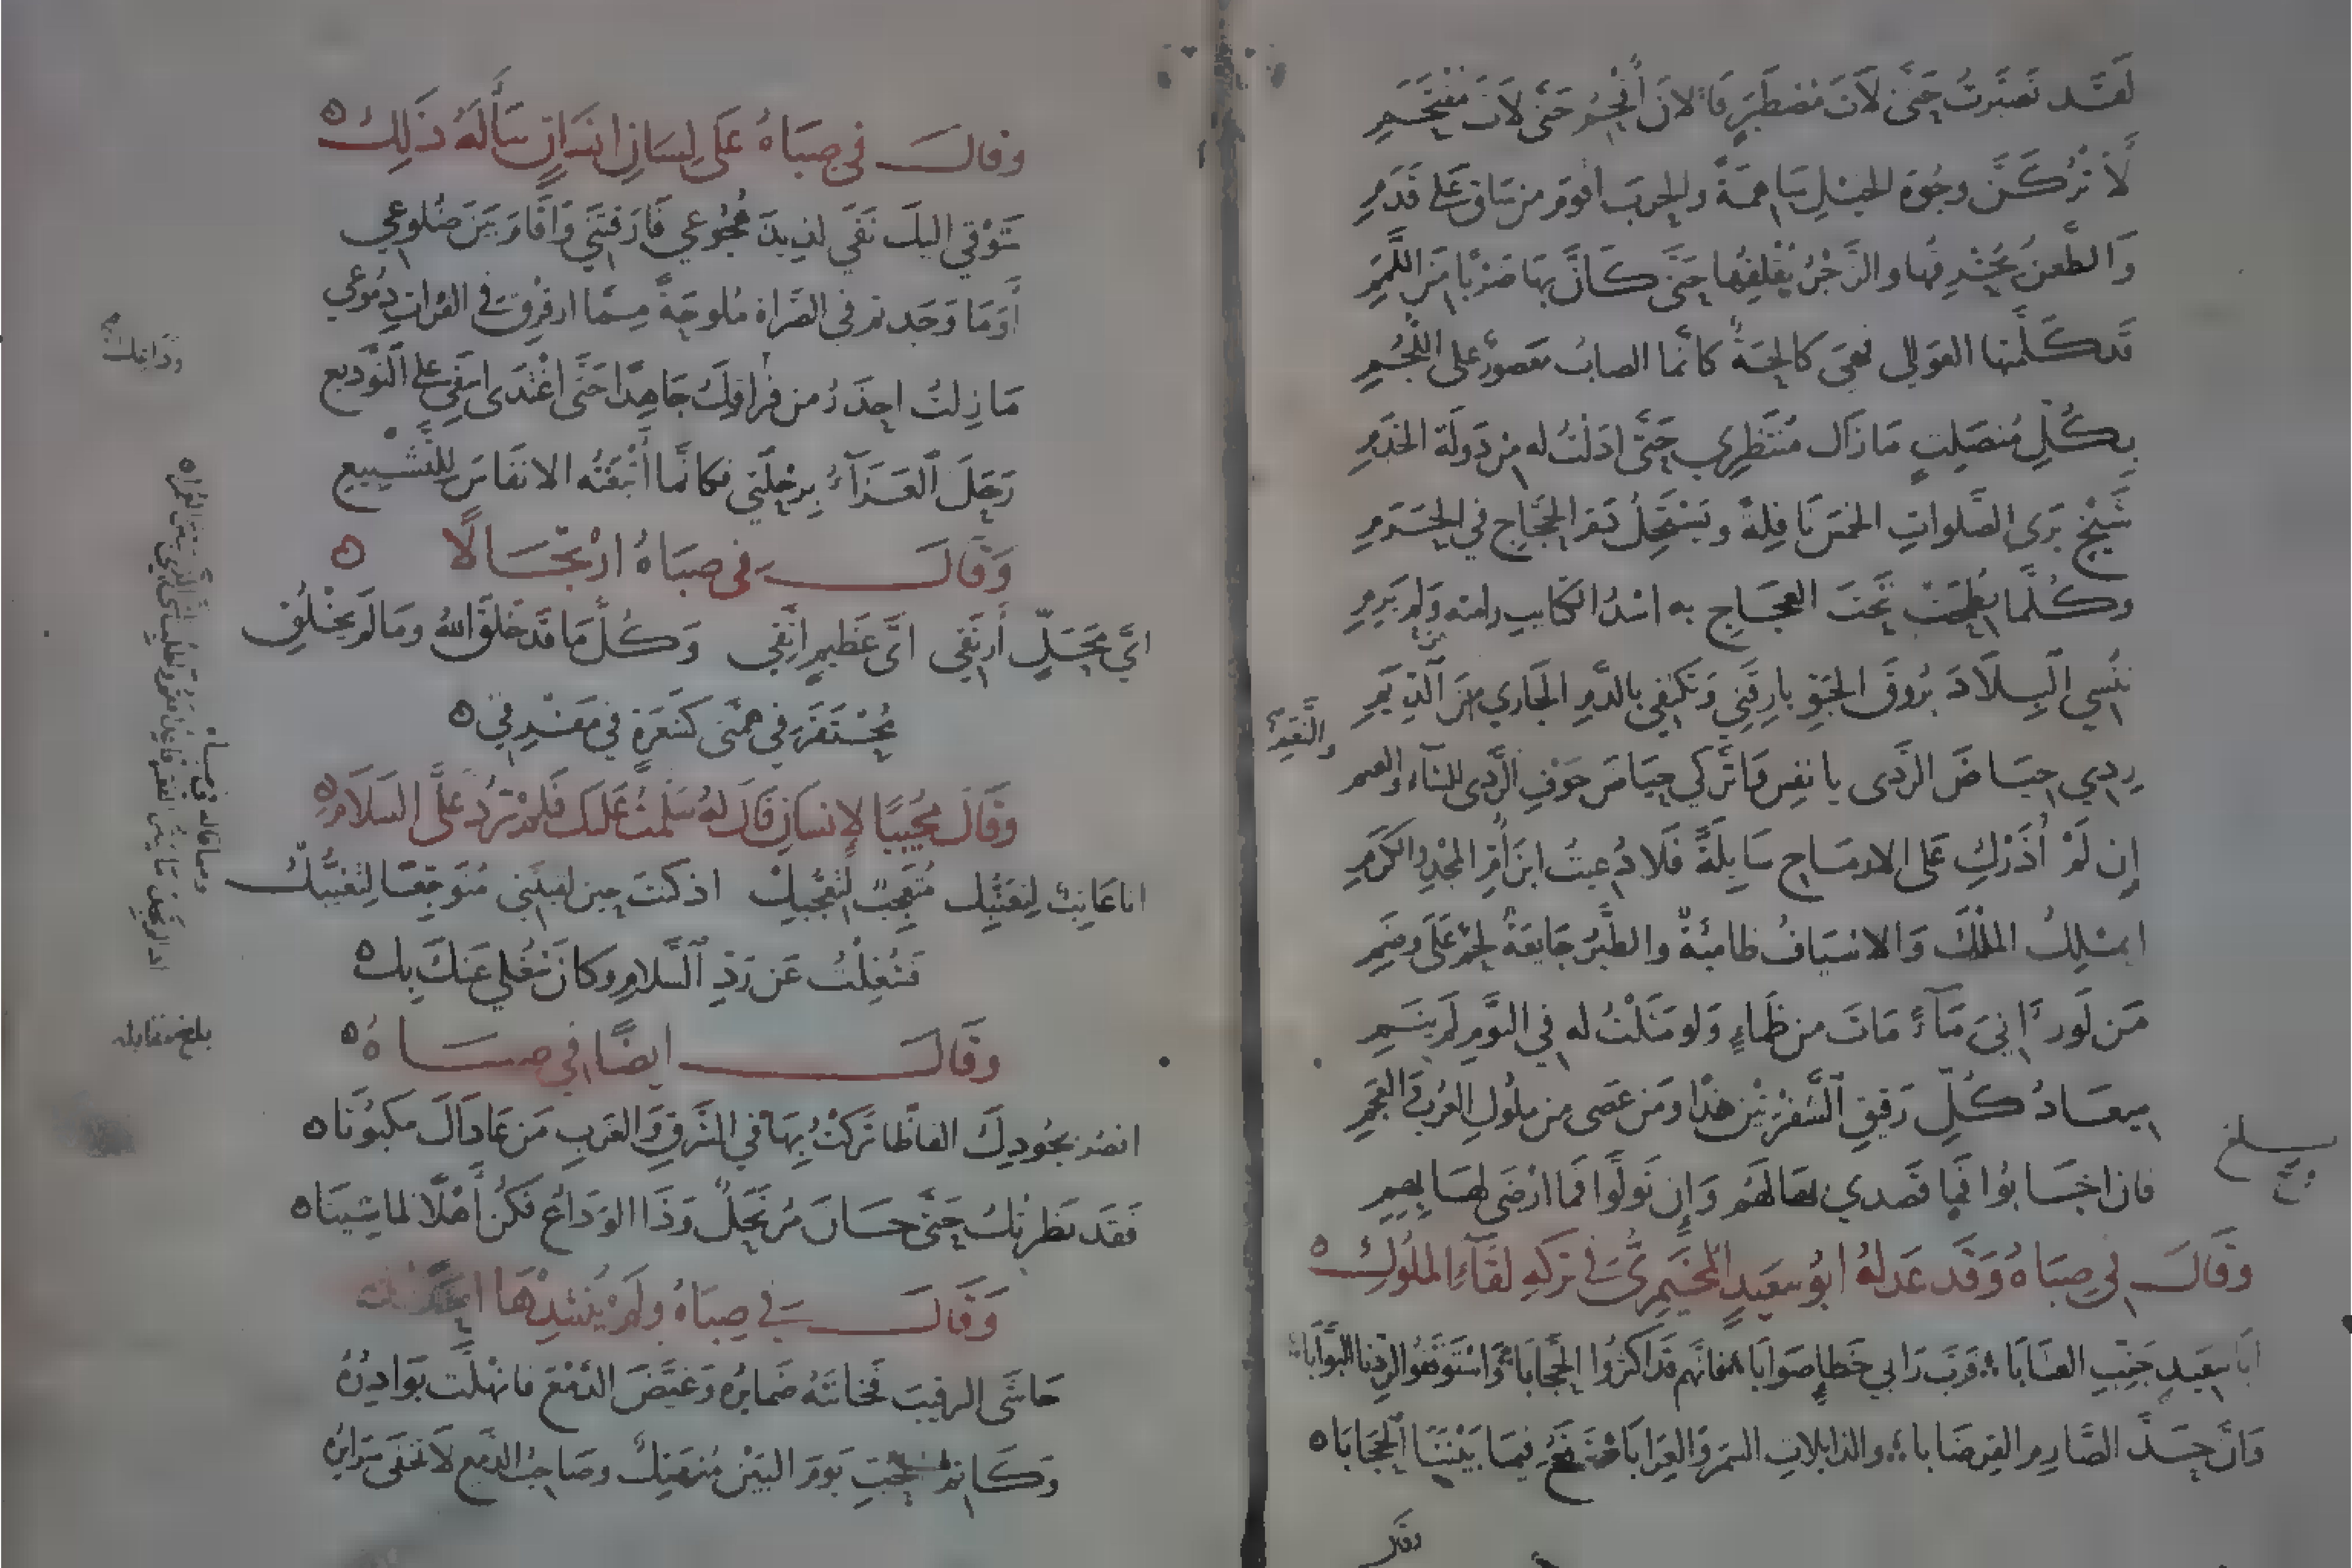 لَقَد تَصَبَّرتُ حَتَّى لَاتَ مُصْطَبَرٍ فَالآنَ أُقْحِمُ حَتَّى لَاتَ مُقْتَحَمِ
لَأَتْرُكَنَّ وجُوهَ الخَيْلِ سَاهِمَةً والحَربُ اقْوَمُ مِن سَاقٍ عَلَى قَدَمِ
وَالطَّعنُ يُحْرِقُهَا والزَّجْرُ يُقْلِقُها حَتَّى كَأَنَّ بِهَا ضَرْبًا مِنَ اللَّمَمِ
قَد كَلَّمَتها العَوَالِي فهيَ كَالِحَةٌ كَأَنَّما الصابُ مَعصورٌ على اللُّجُمِ
بِكُلِّ مُنصَلِتٍ مَا زَالَ مُنْتَظِرِي حَتَّى ادَلْتُ له مِن دَولَة الخَدَمِ
شَيْخٍ يَرَى الصَّلَواتِ الخمسَ نَافِلةً ويَسْتَحِلُّ دَمَ الحُجَّاجِ في الحَرَمِ
وكُلَّمَا نُطِحَتْ تَحتَ العجَاجِ به اسْدُ الكتايبِ رامته وَلم يَرِمِ
تُنسِي البِلَادَ بُروقَ الجَوِّ بارِقَتِي وَتَكتَفِي بالدَّمِ الجَارِي مِنَ الدِّيَمِ
رِدِي حِيَاضَ الرَّدَى يا نفسِ وَاتْرُكِي حِيَاضَ خَوْفِ الرَّدى للشآء والنعم
والنَّعَمِ
إِن لَمْ أَذَرْكِ عَلى الارمَاحِ سَايِلَةً فَلَا دُعيتُ ابنَ أُمِّ المَجْدِ والكَرَمِ
ايَملِكُ المُلْكَ وَالاسْيَافُ ظامِئَةٌ والطَّيْرُ جَايعَةٌ لَحْمٌ عَلَى وَضَمِ
مَن لَو رَآنِيَ مَآءً مَاتَ مِن ظَمَاءٍ وَلو مَثَلْتُ له في النَّومِ لَم يَنَمِ
مِيعَادُ كُلِّ رَقيقِ الشَّفْرَتَيْنِ غدًا ومَن عَصَى مِن ملُوكِ العُربِ وَالعَجَمِ
فان اجَابُوا فَمَا قَصدِي بها لَهُم وَإِن تَوَلَّوا فَمَا ارْضَى لهَا بِهِمِ
بلغ
وقَالَ فِي صِبَاهُ وَقَد عَدلهُ ابُو سَعيدٍ المُخَيمِرِيُّ في تركهِ لقآءَ الملُوكِ
أبَا سعيدٍ جَنِّبِ العتَابَا فرُبَّ رَايي خَطإٍ صَوَابَا فانَّهم قَد اكثرُوا الحُجَّابَا وَاسْتَوقفُوا لِردِّنا البَوَّابَا
فانَّ حَدَّ الصَّارِمِ القِرضَابا والذابلاتِ السمرَ وَالعِرَابَا تَرفعُ فِيمَا بَيْنَنَا الحِجَابَا
وقَال
وقالَ في صِبَاهُ عَلَى لِسَانِ انسَانٍ سَأَلَهُ ذَلِكَ
شَوْقي اليكَ نَفَى لذِيذَ هُجُوعِي فَارَقتَنِي وَأقَامَ بَيْنَ ضُلوعِي
أَوَمَا وَجَدتم في الصَّراة مُلوحَةً مِمَّا ارقرِقُ في الفراتِ دمُوعي
مَا زِلتُ احذَرُ من فراقِكَ جَاهِدًا حَتَّى اغْتَدَى اسَفِي على التَّوديع
وَدَاعِكَ
رَحَلَ العَزَآءُ بِرِحْلَتِي فكانَّما أَتْبَعْتُه الانفَاسَ لِلتَّشْيِيعِ
وَقَالَ في صبَاهُ ارْتجَالًا
ايَّ مَحَلٍّ أَرتَقِي ايَّ عَظِيمٍ اتَّقِي وَكُلُّ مَا قَد خَلَقَ اللهُ ومَا لَم يَخْلُقِ
مُحْتَقَرٌ في هِمَّتي كَشَعرَةٍ فِي مَفْرِقِي
وقَالَ مُجيبًا لإِنسَانٍ قَالَ لهُ سَلَّمتُ عَلَيكَ فَلَم تَرُدَّ عَلَيَّ السَّلَامَ
انا عَاتِبٌ لِتَعَتُّبِك مُتَعَجِّبٌ لِتَعَجُّبِكْ اذ كنتَ حِين لقيتَنِي مُتَوجِّعًا لِتَغَيُّبِكْ
فَشُغِلْتُ عَن رَدِّ السَّلامِ وكَانَ شُغلي عَنكَ بِك
بلغ مقابله
وقَالَ ايضًا في صبَاهُ
انصُر بجُودِكَ الفاظًا تركْتُ بِهَا في الشَّرقِ وَالغَربِ مَن عَادَاكَ مَكبُوتَا
فَقَد نَظَرتُكَ حَتَّى حَانَ مُرتَحَلٌ وَذَا الوَدَاعُ فَكُن أَهْلًا لما شِيتَا
وَقَالَ في صِبَاهُ ولَم يُنْشِدْهَا احَدًا
حَاشَى الرقيبَ فَخَانَتْهُ ضَمايرُه وَغَيَّضَ الدَّمْعَ فانهَلَّت بَوَادِرُهُ
وكَاتمُ الحُبِّ يَومَ البَيْنِ مُنهَتِكٌ وصَاحِبُ الدَّمعِ لَا تخفَى سَرايرُه